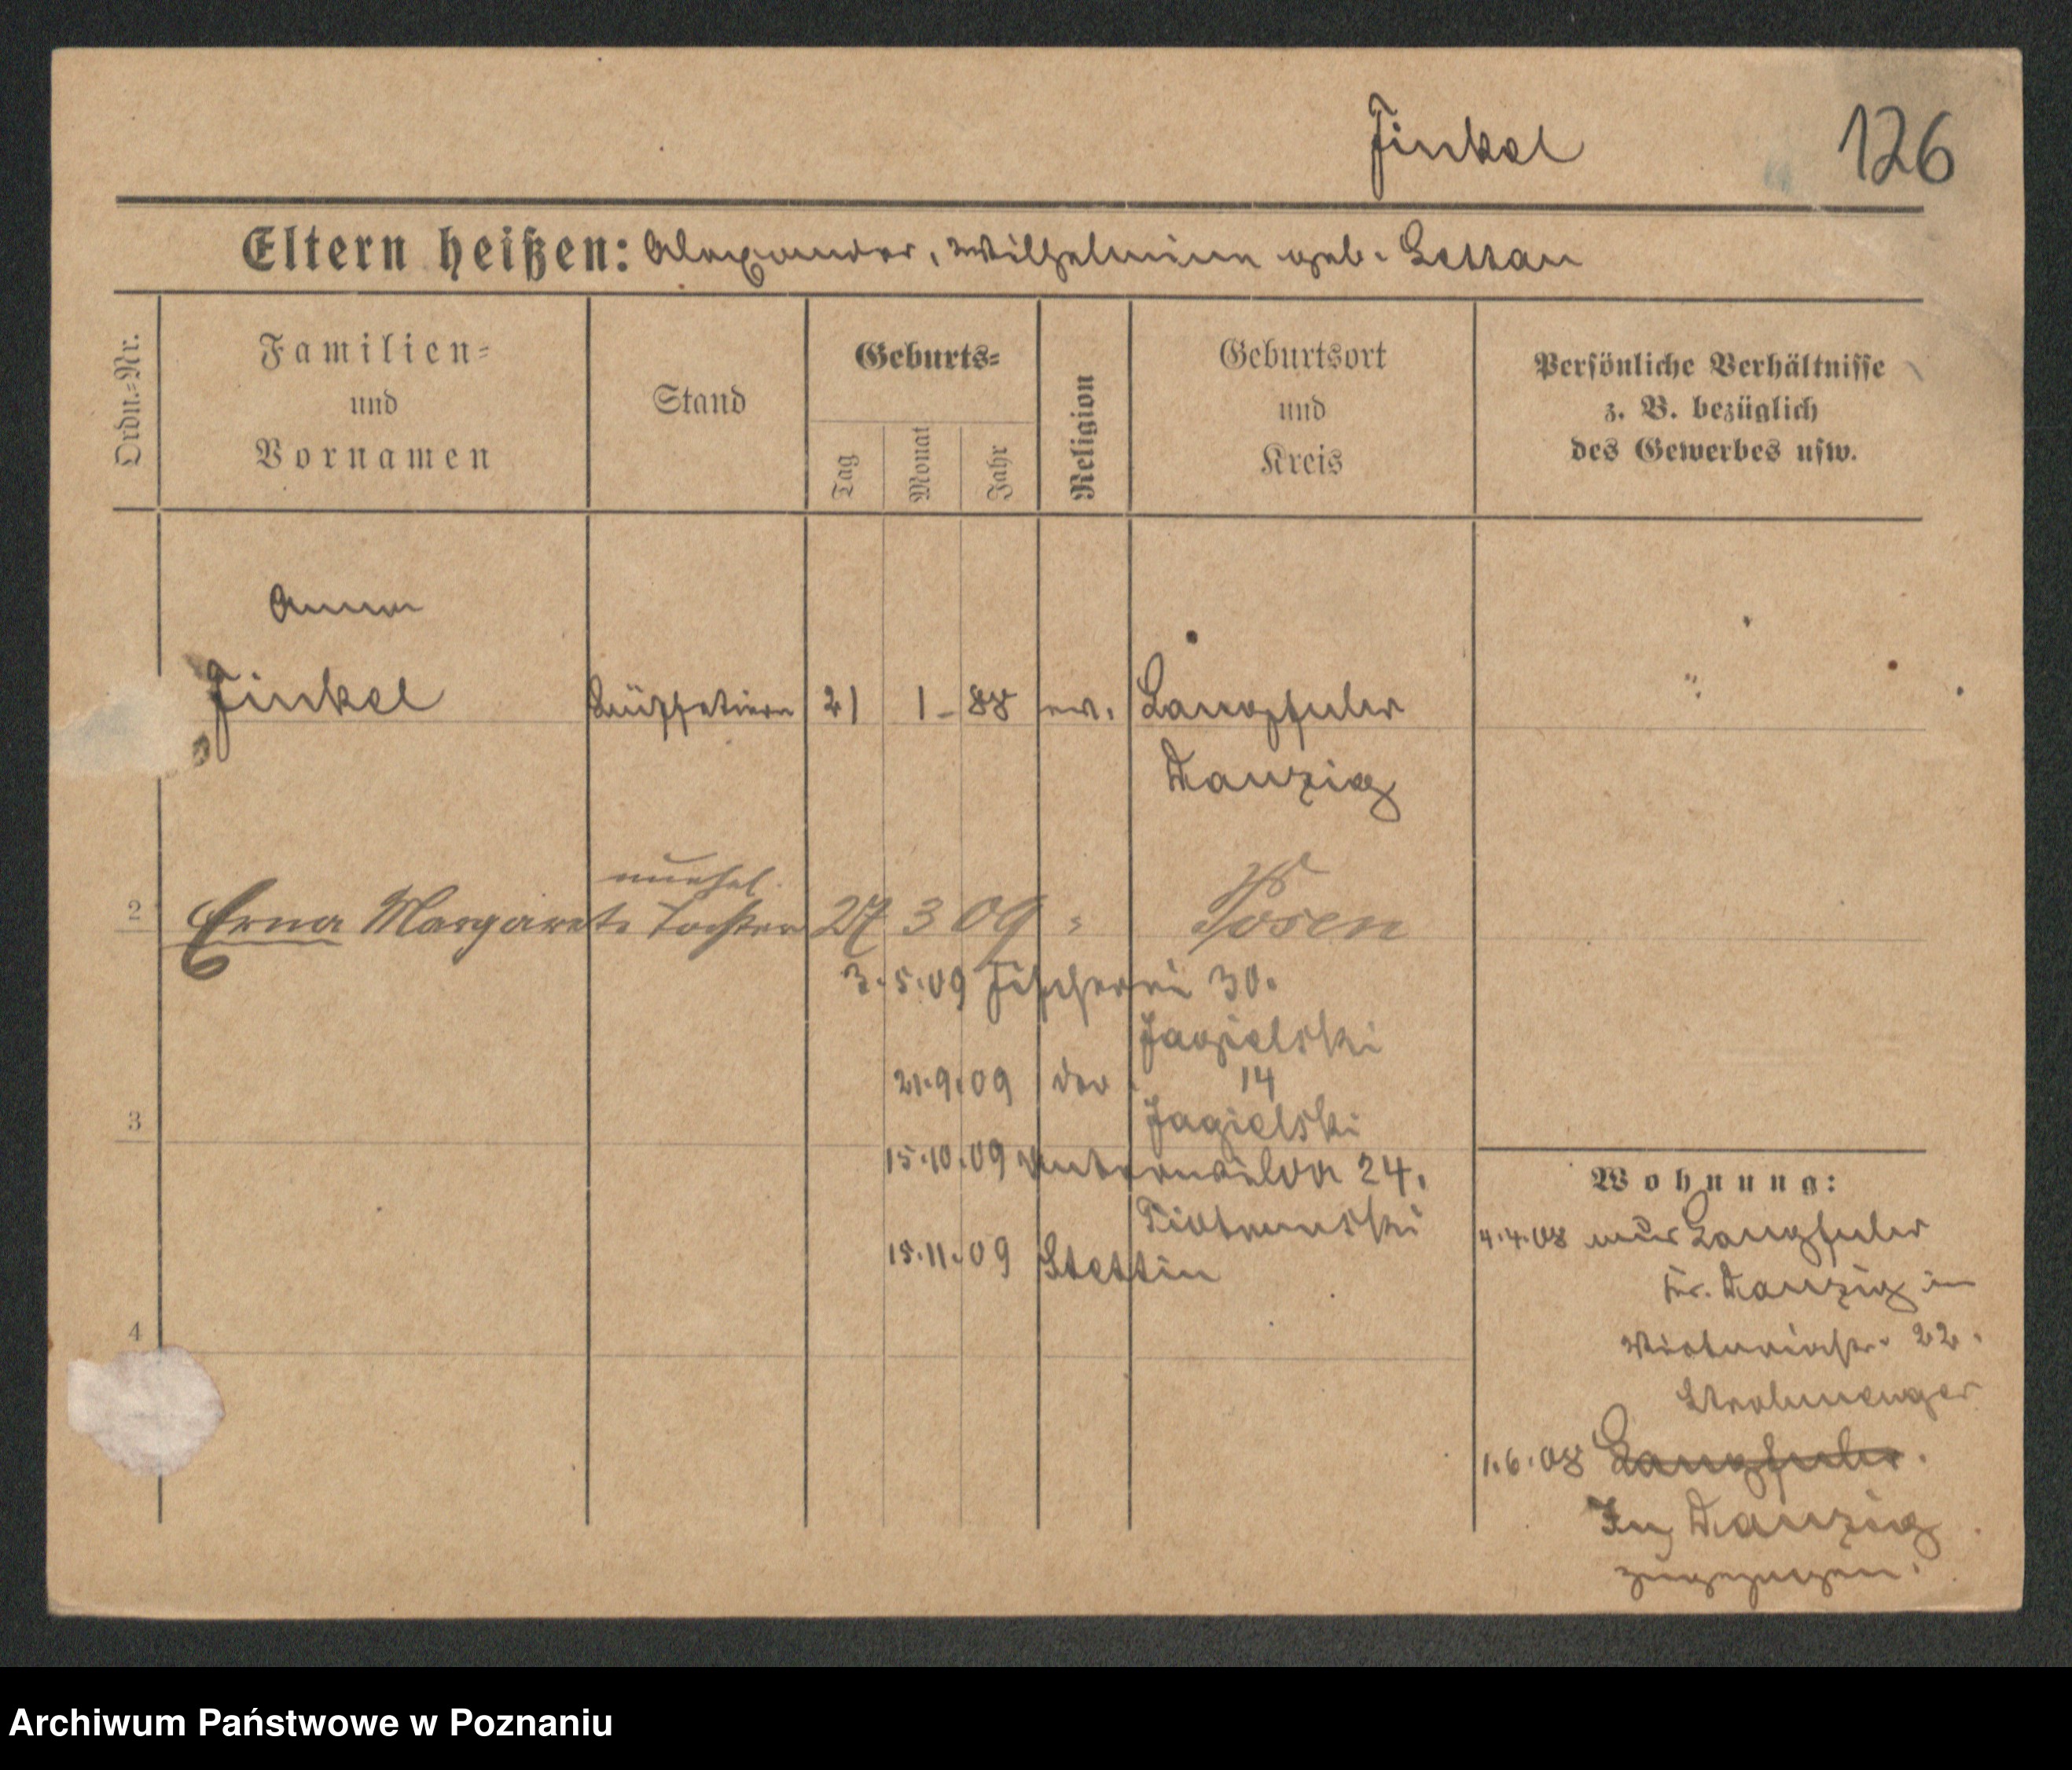 Finkel
126
Eltern heißen: Alexander, Wilhelmine geb. Lettau
Ordn.-Nr.
Familien-
und
Vornamen
Stand
Geburts-
Tag
Monat
Jahr
Religion
Geburtsort
und
Kreis
Persönliche Verhältnisse
z. B. bezüglich
des Gewerbes usw.
Anna
Finkel
Büffetiere
21
1
88
ev.
Langfuhr
Danzig
2
Erna Margarete
unehel.
Tochter
27
3
09
"
Posen
3.5.09 Fischerei 30.
Jagielski
21.9.09
14
Jagielski
3
15.10.09 24.
15.11.09 Stettin
4
Wohnung:
4.4.08 Langfuhr
Kr. Danzig in
Viktoriastr. 22.
Strohmenger
1.6.08 Langfuhr.
Danzig
zugezogen.
Archiwum Państwowe w Poznaniu